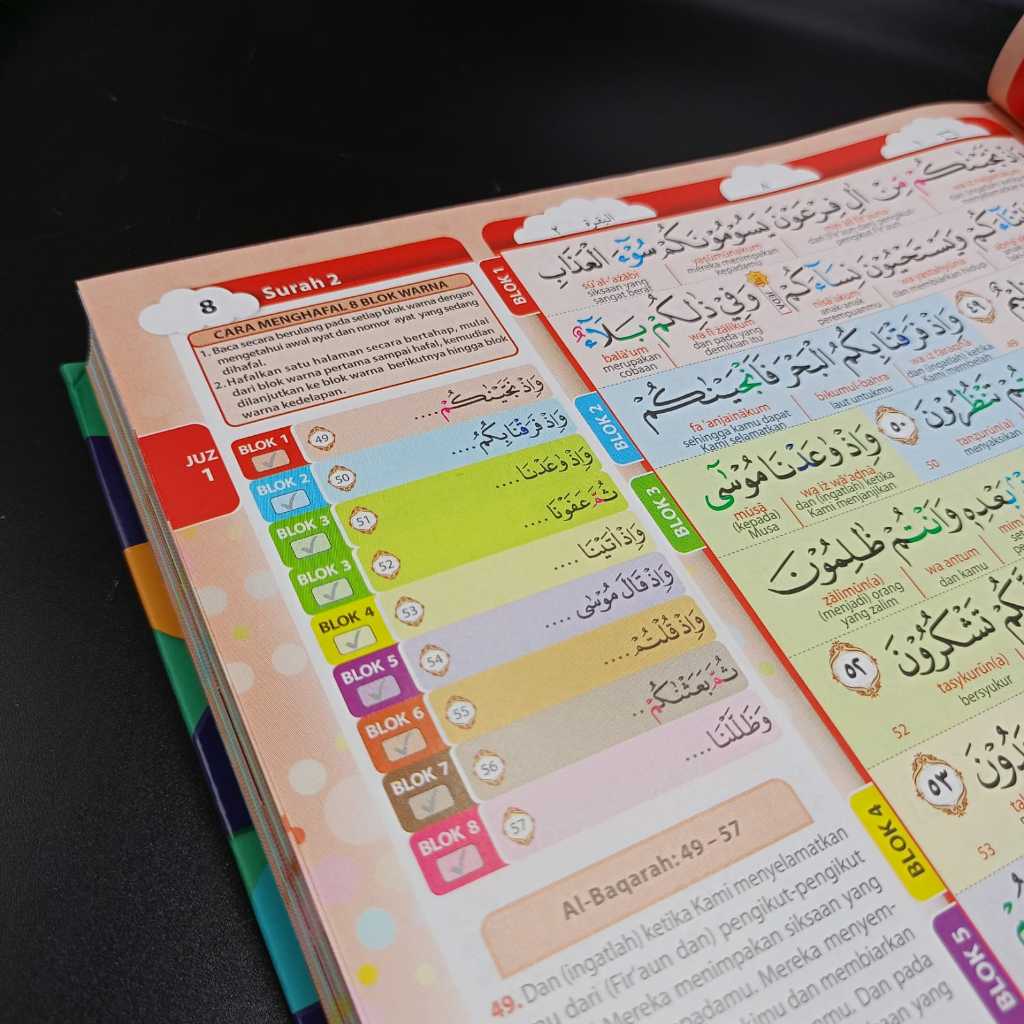 8
Surah 2
CARA MENGHAFAL 8 BLOK WARNA
1. Baca secara berulang pada setiap blok warna dengan
mengetahui awal ayat dan nomor ayat yang sedang
dihafal.
2. Hafalkan satu halaman secara bertahap, mulai
dari blok warna pertama sampai hafal, kemudian
dilanjutkan ke blok warna berikutnya hingga blok
warna kedelapan.
JUZ
1
BLOK 1 49 وَاِذْ نَجَّيْنٰكُمْ....
BLOK 2 50 وَاِذْ فَرَقْنَا بِكُمُ....
BLOK 3 51 وَاِذْ وٰعَدْنَا....
BLOK 3 52 ثُمَّ عَفَوْنَا....
BLOK 4 53 وَاِذْ اٰتَيْنَا....
BLOK 5 54 وَاِذْ قَالَ مُوْسٰى....
BLOK 6 55 وَاِذْ قُلْتُمْ....
BLOK 7 56 ثُمَّ بَعَثْنٰكُمْ..
BLOK 8 57 وَظَلَّلْنَا....
Al-Baqarah: 49 – 57
49. Dan (ingatlah) ketika Kami menyelamatkan
dari (Fir'aun dan) pengikut-pengikut
Mereka menimpakan siksaan yang
padamu. Mereka menyem-
kimu dan membiarkan
mu. Dan pada
yang
البقرة ٢
BLOK 1
وَاِذْ نَجَّيْنٰكُمْ مِّنْ اٰلِ فِرْعَوْنَ يَسُوْمُوْنَكُمْ سُوْۤءَ الْعَذَابِ
yasūmūnakum
mereka menimpakan
kepadamu
sū'al-'ażābi
siksaan yang
sangat berat
وَيَسْتَحْيُوْنَ نِسَاۤءَكُمْ وَفِيْ ذٰلِكُمْ بَلَاۤءٌ
nisā'akum
anak-anak
perempuanmu
wa fī żālikum
dan pada yang
demikian itu
balā'um
merupakan
cobaan
٤٩
49
BLOK 2
وَاِذْ فَرَقْنَا بِكُمُ الْبَحْرَ فَاَنْجَيْنٰكُمْ
wa iż faraqnā
dan (ingatlah) ketika
Kami membelah
bikumul-baḥra
laut untukmu
fa'anjainākum
sehingga kamu dapat
Kami selamatkan
تَنْظُرُوْنَ ٥٠
tanẓurūn(a)
menyaksikan
50
BLOK 3
وَاِذْ وٰعَدْنَا مُوْسٰٓى
wa iż wā'adnā
dan (ingatlah) ketika
Kami menjanjikan
mūsā
(kepada)
Musa
بَعْدِهٖ وَاَنْتُمْ ظٰلِمُوْنَ
wa antum
dan kamu
ẓālimūn(a)
(menjadi) orang
yang zalim
تَشْكُرُوْنَ ٥٢
tasykurūn(a)
bersyukur
52
٥٣
53
BLOK 4
BLOK 5